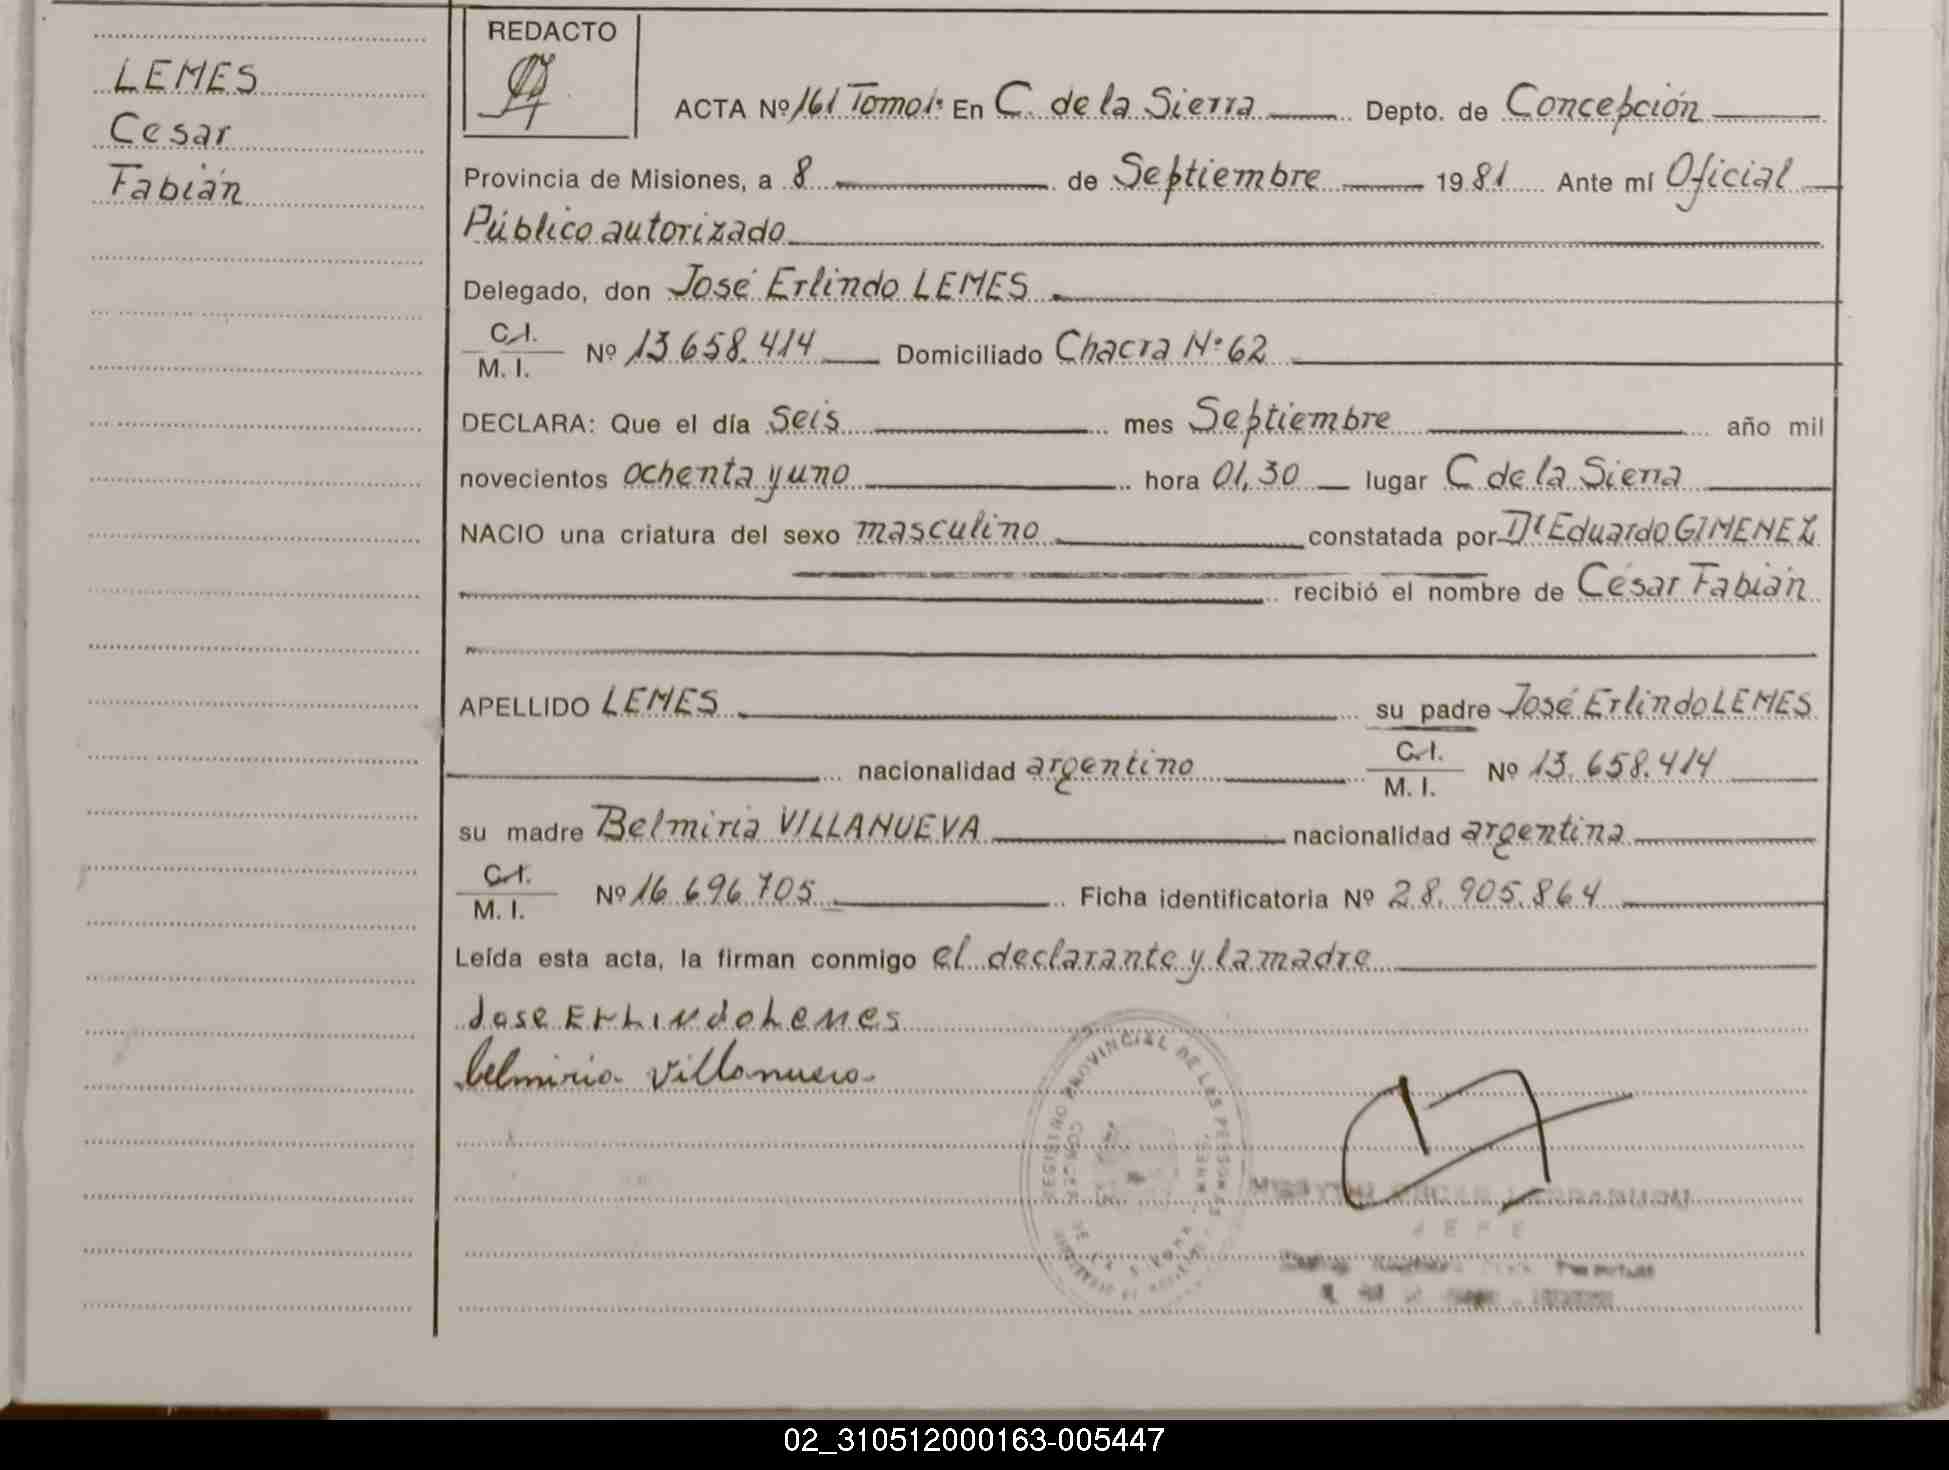 LEMES
Cesar
Fabián
REDACTO
ACTA Nº 161 Tomo 1º En C. de la Sierra Depto. de Concepción
Provincia de Misiones, a 8 de Septiembre 1981 Ante mí Oficial
Público autorizado
Delegado, don José Erlindo LEMES
C.I.
M. I. Nº 13.658.414 Domiciliado Chacra Nº 62
DECLARA: Que el día seis mes Septiembre año mil
novecientos ochenta y uno hora 01,30 lugar C de la Sierra
NACIO una criatura del sexo masculino constatada por Dr Eduardo GIMENEZ
recibió el nombre de César Fabián
APELLIDO LEMES su padre José Erlindo LEMES
nacionalidad argentino C.I.
M. I. Nº 13.658.414
su madre Belmiria VILLANUEVA nacionalidad argentina
C.I.
M. I. Nº 16.696.705 Ficha identificatoria Nº 28.905.864
Leída esta acta, la firman conmigo el declarante y la madre
Jose ErLindo Lemes
belmiria Villanueva
REGISTRO PROVINCIAL DE LAS PERSONAS
JEFE
02_310512000163-005447